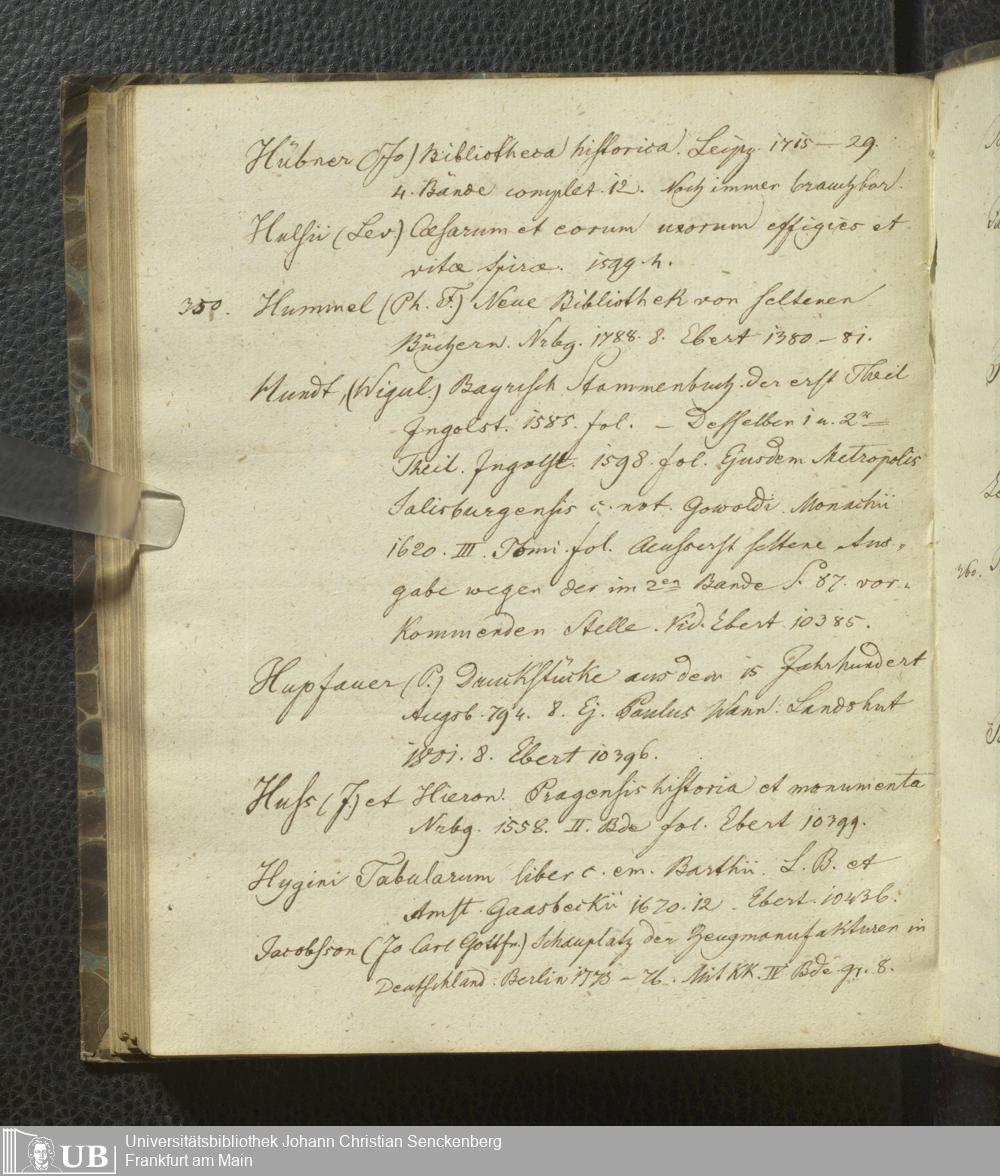 Hübner (Jo) Bibliotheca historica. Leipz. 1715 — 29.
4. Bände complet. 12. Noch immer brauchbar.
Hulsii (Lev) Cæsarum et eorum uxorum effigies et
vitæ Spiræ. 1599. 4.
350. Hummel (Ph. F.) Neue Bibliothek von seltenen
Büchern. Nrbg. 1788. 8. Ebert 1380 — 81.
Hundt, (Wigul.) Bayrisch Stammenbuch. der erst Theil
Ingolst. 1585. fol. — Desselben 1 u. 2r
Theil. Ingolst. 1598. fol. Ejusdem Metropolis
Salisburgensis c. not. Gowoldi. Monachii
1620. III. Tomi. fol. Aeusserst seltene Aus„
gabe wegen der im 2en Bande S. 87. vor„
kommenden Stelle. Vid. Ebert 10385.
Hupfauer (P.) Druckstücke aus dem 15 Jahrhundert
Augsb. 794. 8. Ej. Paulus Wann. Landshut
1801. 8. Ebert 10396.
Huss (J) et Hieron. Pragensis historia et monumenta
Nrbg. 1558. II. Bde fol. Ebert 10399.
Hygini Fabularum liber c. em. Barthii. L. B. et
Amst. Gaasbeckii 1670. 12. Ebert. 10436.
Jacobsson (Jo Carl Gottfr.) Schauplatz der Zeugmanufakturen in
Deutschland. Berlin 1773 — 76. Mit KK. IV Bde gr. 8.
360.
UB
Universitätsbibliothek Johann Christian Senckenberg
Frankfurt am Main